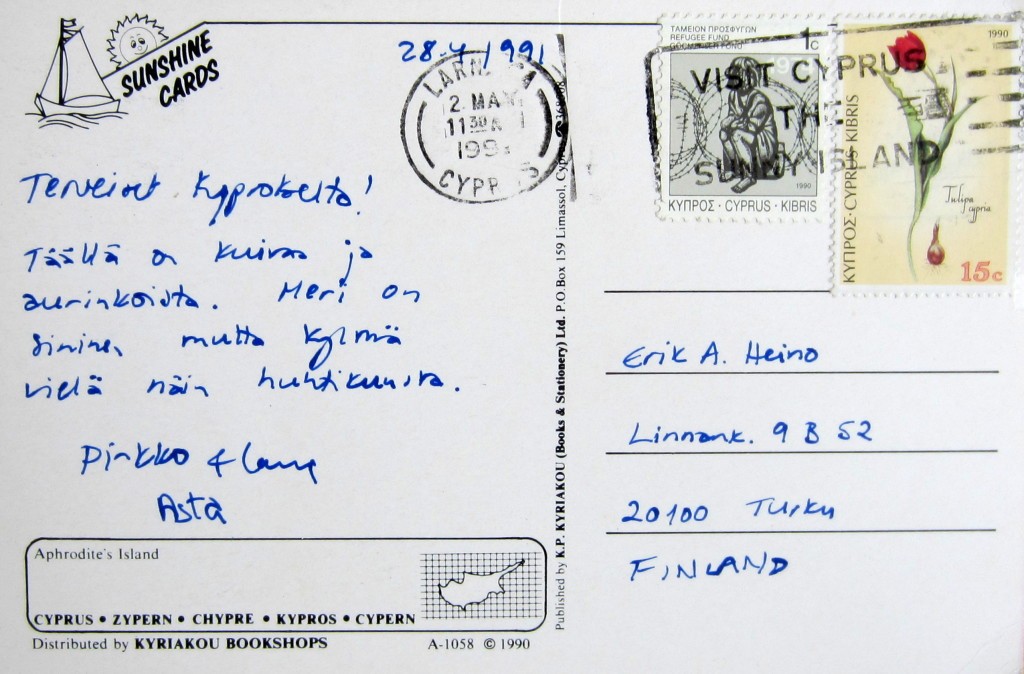 SUNSHINE
CARDS
28.4 1991
LARNACA
2. MAY
11 30 A
199
CYPRUS
VISIT CYPRUS
THE
SUNNY ISLAND
ΤΑΜΕΙΟΝ ΠΡΟΣΦΥΓΩΝ
REFUGEE FUND
GÖÇMENLER FONU
1c
1990
ΚΥΠΡΟΣ · CYPRUS · KIBRIS
1990
ΚΥΠΡΟΣ·CYPRUS·KIBRIS
Tulipa
cypria
15c
Terveiset Kyprokselta!
Täällä on kuivaa ja
aurinkoista. Meri on
sininen mutta kylmä
vielä näin huhtikuussa.
Pirkko &
Asta
Erik A. Heino
Linnank. 9 B 52
20100 Turku
FINLAND
Published by K.P. KYRIAKOU (Books & Stationery) Ltd. P.O.Box 159 Limassol, Cyprus
Aphrodite's Island
CYPRUS • ZYPERN • CHYPRE • KYPROS • CYPERN
Distributed by KYRIAKOU BOOKSHOPS
A-1058 © 1990